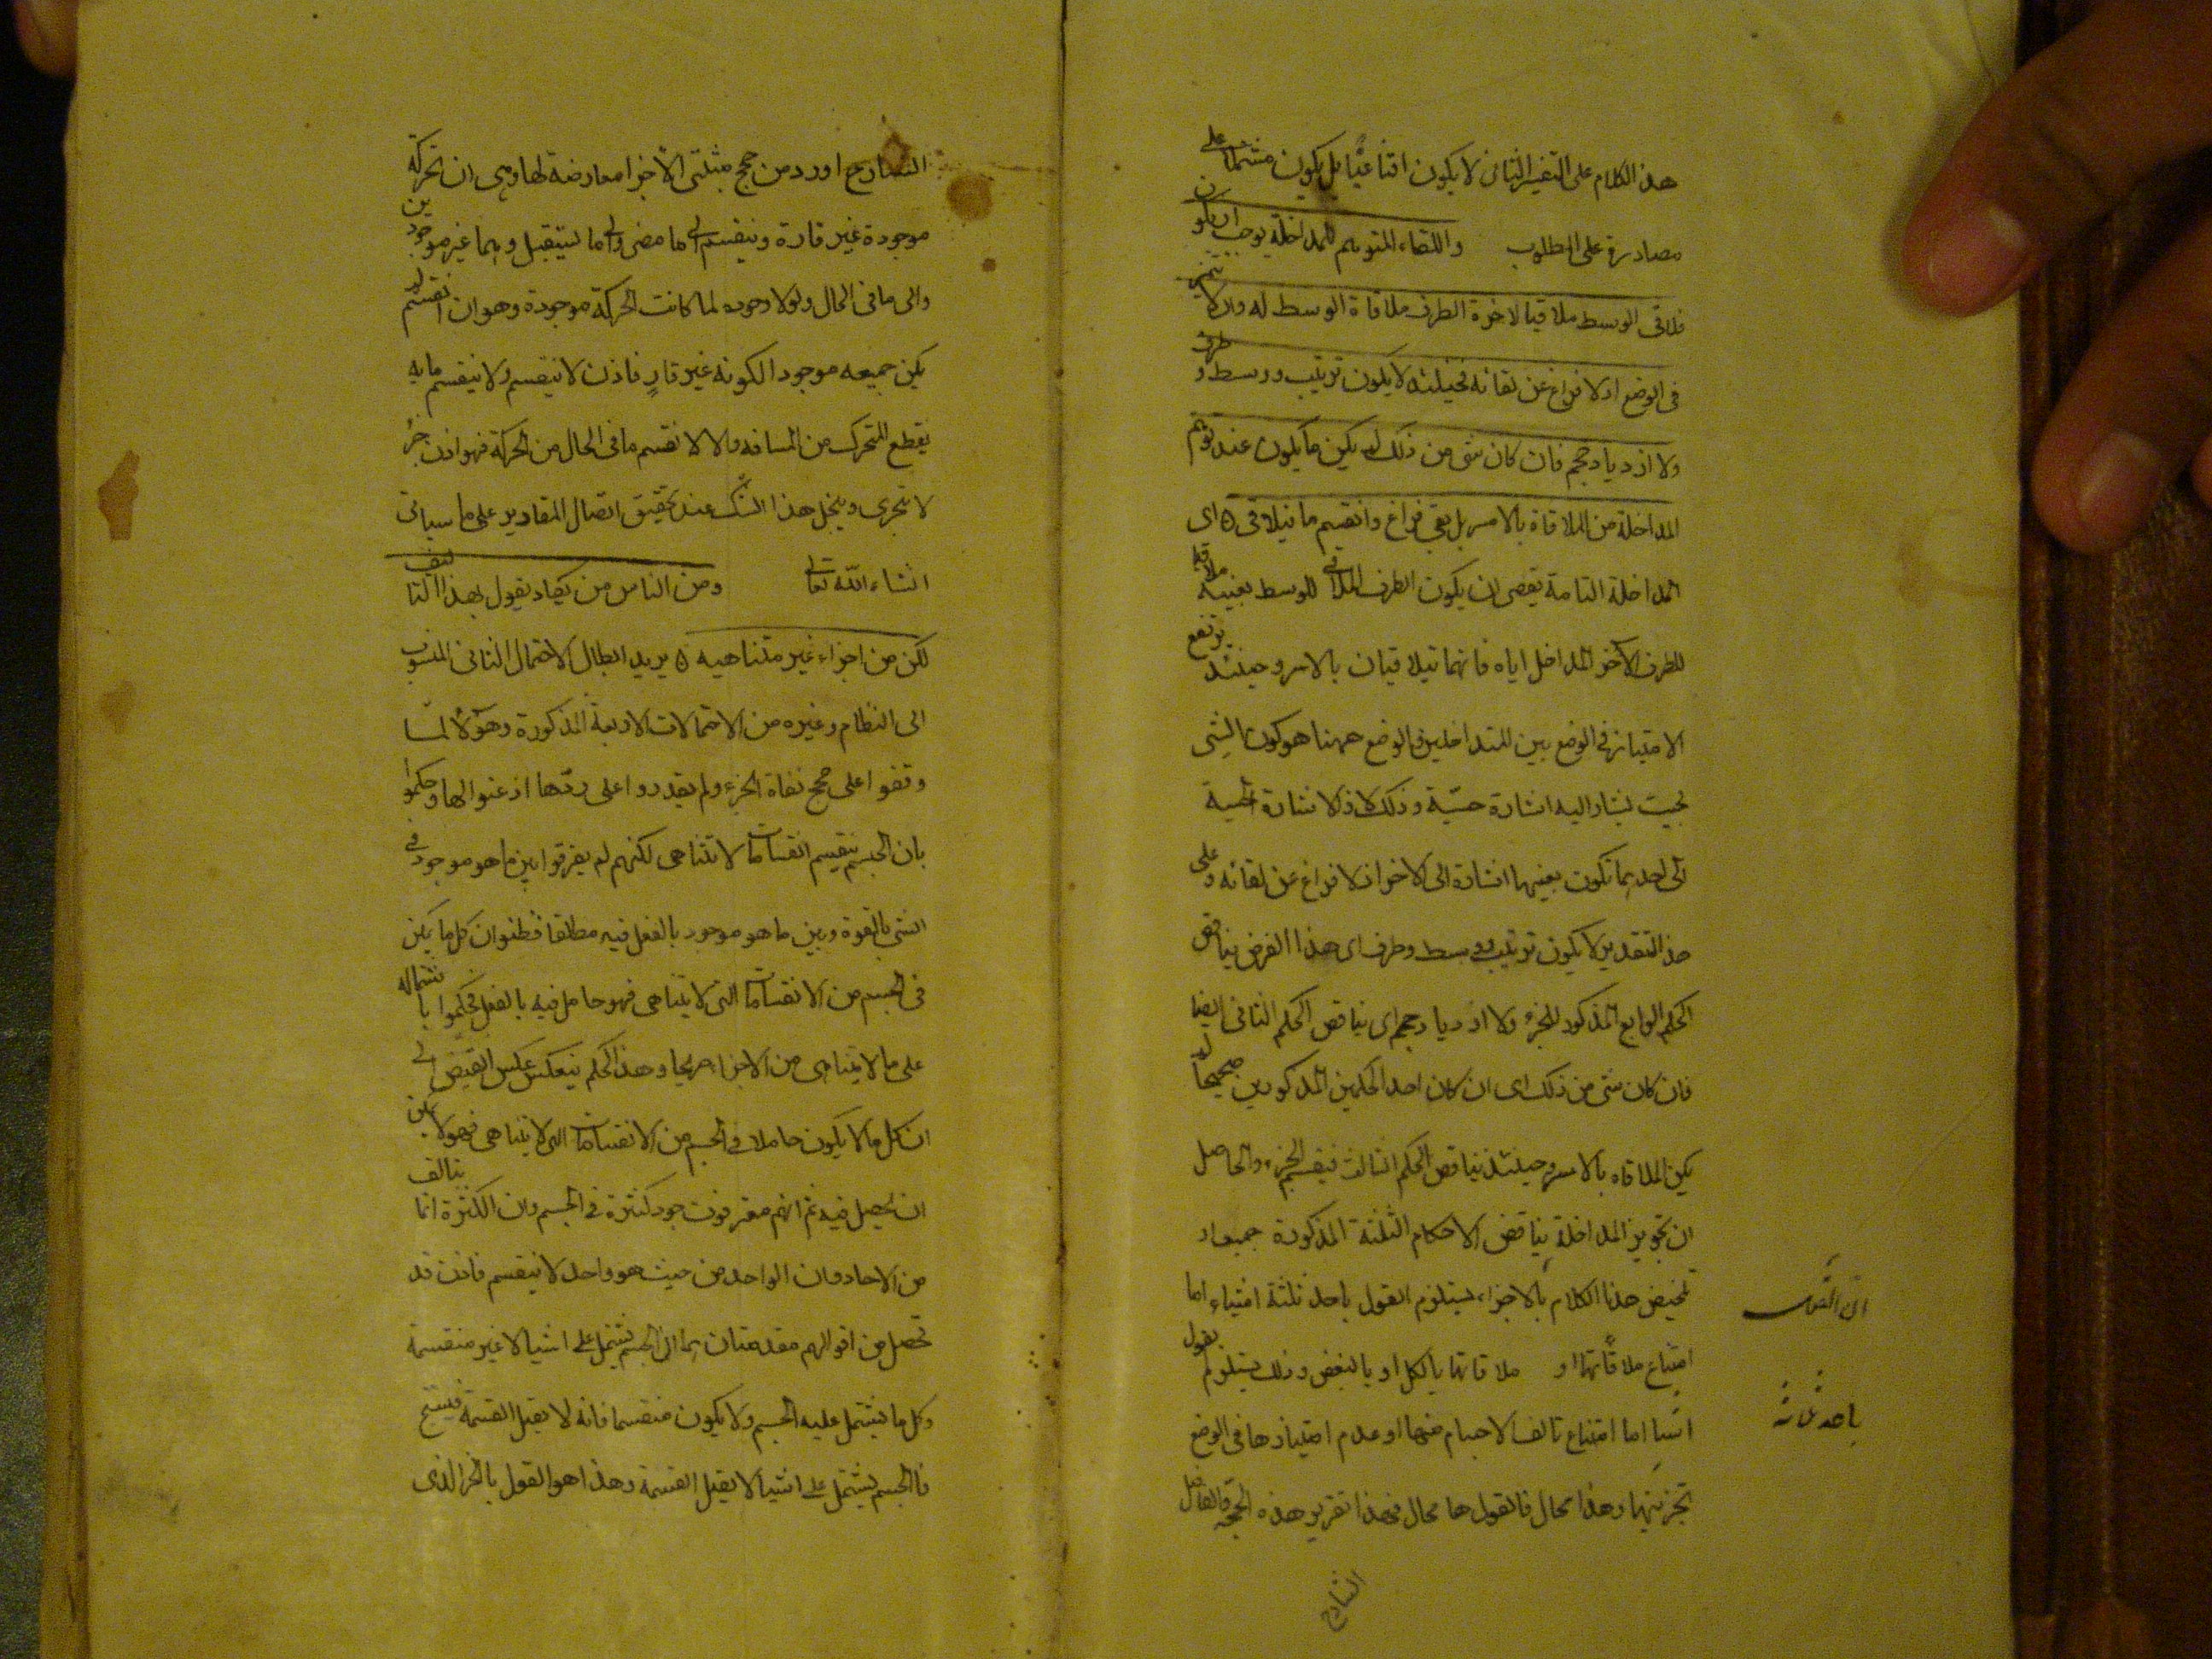 هذا الكلام على التفسير الثانى لا يكون اقناعيًا بل يكون مشتملا على
مصادرة على المطلوب واللقاء المتوهم للمداخلة يوجب ان يكون
ملاقى الوسط ملاقيا لاخرة الطرف ملاقاة الوسط له وان لا يتميز
فى الوضع اذ لا فراغ عن لقائه فحينئذ لا يكون ترتيب ووسط وطرف
ولا ازدياد حجم فان كان شى من ذلك لم يكن ما يكون عند توهم
المداخلة من الملاقاة بالاسر بل بقى فراغ وانقسم ما يتلاقى ه اى
المداخلة التامة يقتضى ان يكون الطرف الملاقى للوسط بعينه ملاقيا
للطرف الآخر المداخل اياه فانهما يتلاقيان بالاسر وحينئذ يرتفع
الامتياز فى الوضع بين المتداخلين فالوضع ههنا هو كون الشى
بحيث يشار اليه اشارة حسّية وذلك لان الاشارة الحسية
الى احديهما تكون بعينها اشارة الى الاخر اذ لا فراغ عن لقائه وعلى
هذا التقدير لا يكون ترتيب ووسط وطرف اى هذا الفرض يناقض
الحكم الرابع المذكور للجزء ولا ازدياد حجم اى يناقض الحكم الثانى ايضا
فان كان شى من ذلك اى ان كان احد الحكمين المذكورين صحيحا لم
يكن الملاقاه بالاسر وحينئذ يناقض الحكم الثالث فينقسم الجزء والحاصل
ان تجويز المداخلة يناقض الاحكام الثلثة المذكورة جميعا و
تلخيص هذا الكلام بالاجزاء يستلزم القول باحد ثلثة اشياء اما
امتناع ملاقاتها او ملاقاتها بالكل او بالبعض وذلك يستلزم القول
باحد ثلثة
اشيا اما امتناع تالف الاجسام منها او عدم امتيازها فى الوضع
تجزيتها وهذا محال فالقول بها محال فهذا تقرير هذه الحجة والفاضل
الشارح
الشارح اورد من حجج مثبتى الاجزا معارضة لها وهى ان الحركة
موجودة غير قارة وينقسم الى ما مضى والى ما يستقبل وهما غير موجودين
والى ما فى الحال ولولا وجوده لما كانت الحركة موجودة وهو ان انقسم لم
يكن جميعه موجودا لكونه غير قارٍ فاذن لا ينقسم ولا ينقسم ما به
يقطع المتحرك من المسافه والا لانقسم ما فى الحال من الحركة فهو اذن جزء
لا يتجزى وينحل هذا الشك عند تحقيق اتصال المقادير على ما سياتى
انشاء الله تعالى ومن الناس من يكاد يقول بهذا التاليف
لكن من اجزاء غير متناهيه ه يريد ابطال الاحتمال الثانى المنسوب
الى النظام وغيره من الاحتمالات الاربعة المذكورة وهؤلاء لما
وقفوا على حجج نفاة الجزء ولم يقدروا على ردّها اذعنوا لها وحكموا
بان الجسم ينقسم انقسامات لا تتناهى لكنهم لم يفرقوا بين ما هو موجود فى
الشى بالقوة وبين ما هو موجود بالفعل فيه مطلقا فظنوا ان كل ما يمكن
فى الجسم من الانقسامات التى لا يتناهى فهو حاصل فيه بالفعل فحكموا باشتماله
على ما لا يتناهى من الاجزاء صريحا وهذا الحكم ينعكس عكس النقيض الى
ان كل ما لا يكون حاصلا فى الجسم من الانقسامات التى لا يتناهى فهو لا يمكن
ان يحصل فيه ثم انهم معترفون بوجود كثرة فى الجسم وان الكثرة انما يتالف
من الاحاد وان الواحد من حيث هو واحد لا ينقسم فاذن قد
تحصل من اقوالهم مقدمتان هما ان الجسم يشتمل على اشيا لا غير منقسمة
وكل ما يشتمل عليه الجسم ولا يكون منقسما فانه لا يقبل القسمة فينتج
فالجسم يشتمل على اشيا لا يقبل القسمة وهذا هو القول بالجزا الذى